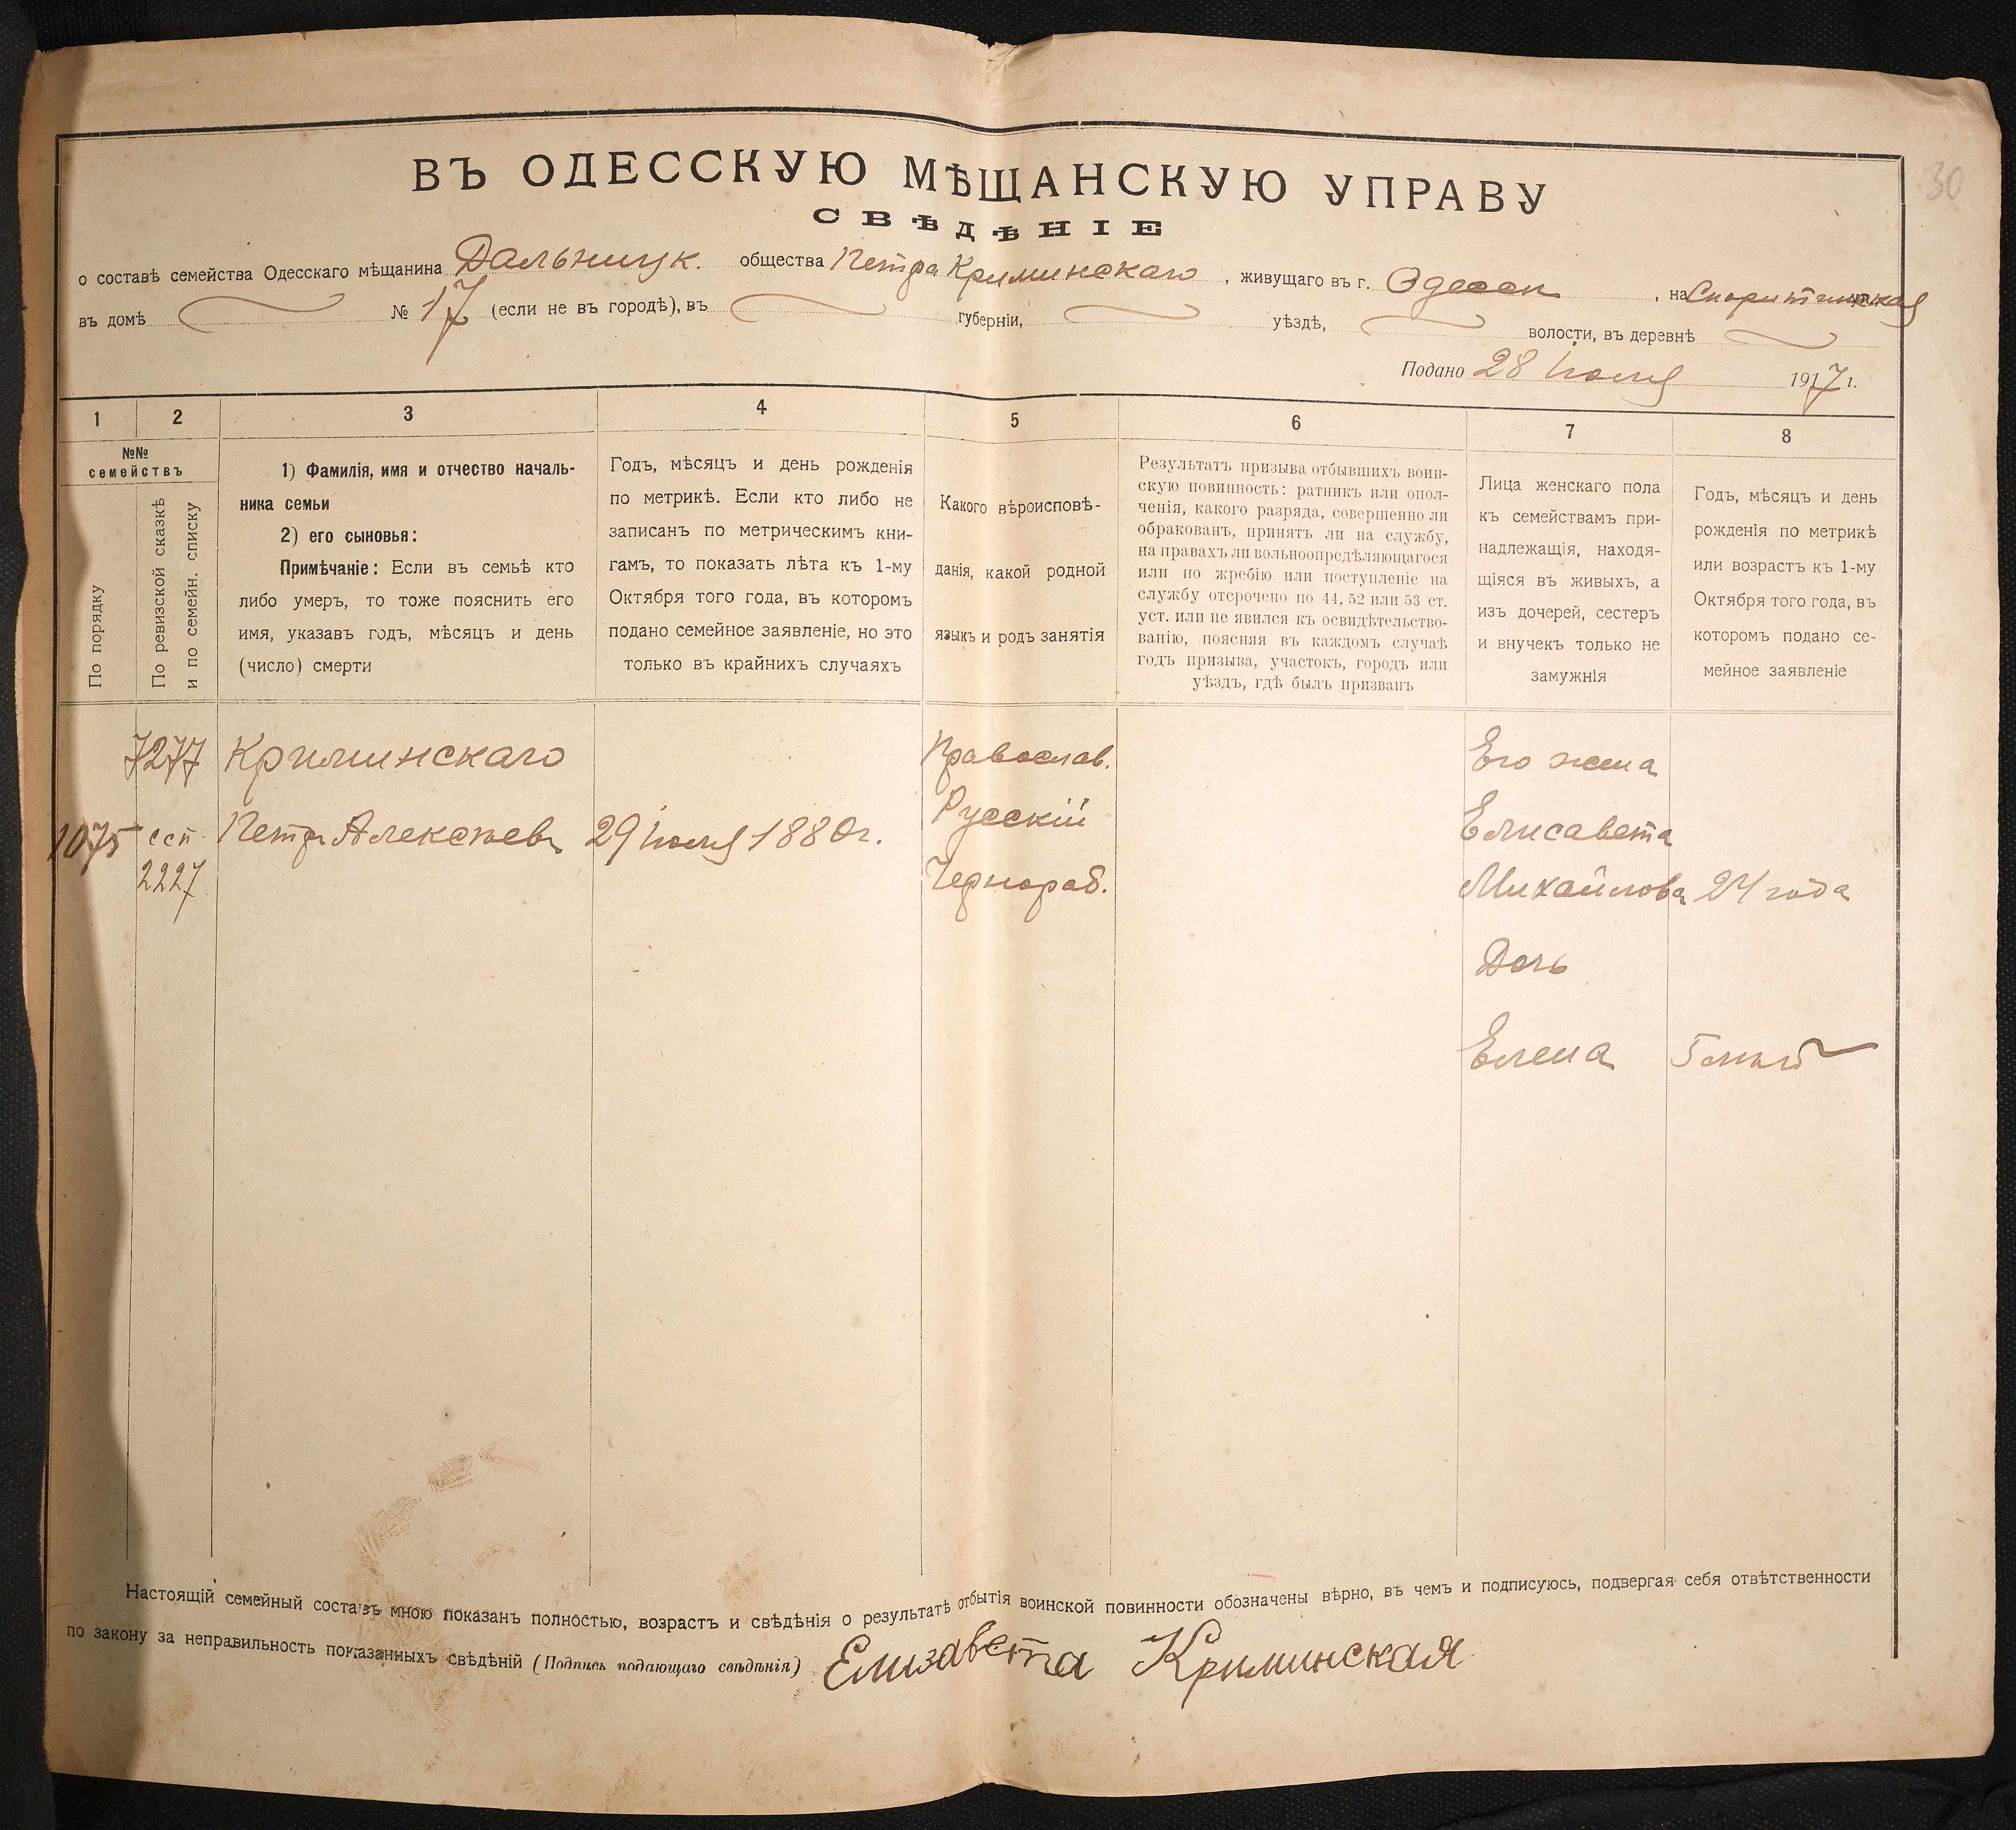 30
ВЪ ОДЕССКУЮ МѢЩАНСКУЮ УПРАВУ
СВѢДѢНІЕ
о составѣ семейства Одесскаго мѣщанина Дальницк. общества Петра Криминскаго, живущаго въ г. Одессѣ, на
въ домѣ № 17 (если не въ городѣ), въ губерніи, уѣздѣ, волости, въ деревнѣ
Подано 28 Іюля 1917 г.
1 2 3 4 5 6 7 8
№№
семействъ
По порядку
По ревизской сказкѣ
и по семейн. списку
1) Фамилія, имя и отчество началь-
ника семьи
2) его сыновья:
Примѣчаніе: Если въ семьѣ кто
либо умеръ, то тоже пояснить его
имя, указавъ годъ, мѣсяцъ и день
(число) смерти
Годъ, мѣсяцъ и день рожденія
по метрикѣ. Если кто либо не
записанъ по метрическимъ кни-
гамъ, то показать лѣта къ 1-му
Октября того года, въ которомъ
подано семейное заявленіе, но это
только въ крайнихъ случаяхъ
Какого вѣроисповѣ-
данія, какой родной
языкъ и родъ занятія
Результатъ призыва отбывшихъ воин-
скую повинность: ратникъ или опол-
ченія, какого разряда, совершенно ли
обракованъ, принятъ ли на службу,
на правахъ ли вольноопредѣляющагося
или по жребію или поступленіе на
службу отсрочено по 44, 52 или 53 ст.
уст. или не явился къ освидѣтельство-
ванію, поясняя въ каждомъ случаѣ
годъ призыва, участокъ, городъ или
уѣздъ, гдѣ былъ призванъ
Лица женскаго пола
къ семействамъ при-
надлежащія, находя-
щіяся въ живыхъ, а
изъ дочерей, сестеръ
и внучекъ только не
замужнія
Годъ, мѣсяцъ и день
рожденія по метрикѣ
или возрастъ къ 1-му
Октября того года, въ
которомъ подано се-
мейное заявленіе
7277 Криминскаго Православ. Его жена
1075 ссп. Петръ Алексѣевъ 29 Іюля 1880 г. Русскій Елисавета
2227 Чернораб. Михайлова 24 года
Дочь
Елена 5 лѣтъ
Настоящій семейный составъ мною показанъ полностью, возрастъ и свѣдѣнія о результатѣ отбытія воинской повинности обозначены вѣрно, въ чемъ и подписуюсь, подвергая себя отвѣтственности
по закону за неправильность показанныхъ свѣдѣній (Подпись подающаго свѣдѣнія) Елизавета Криминская